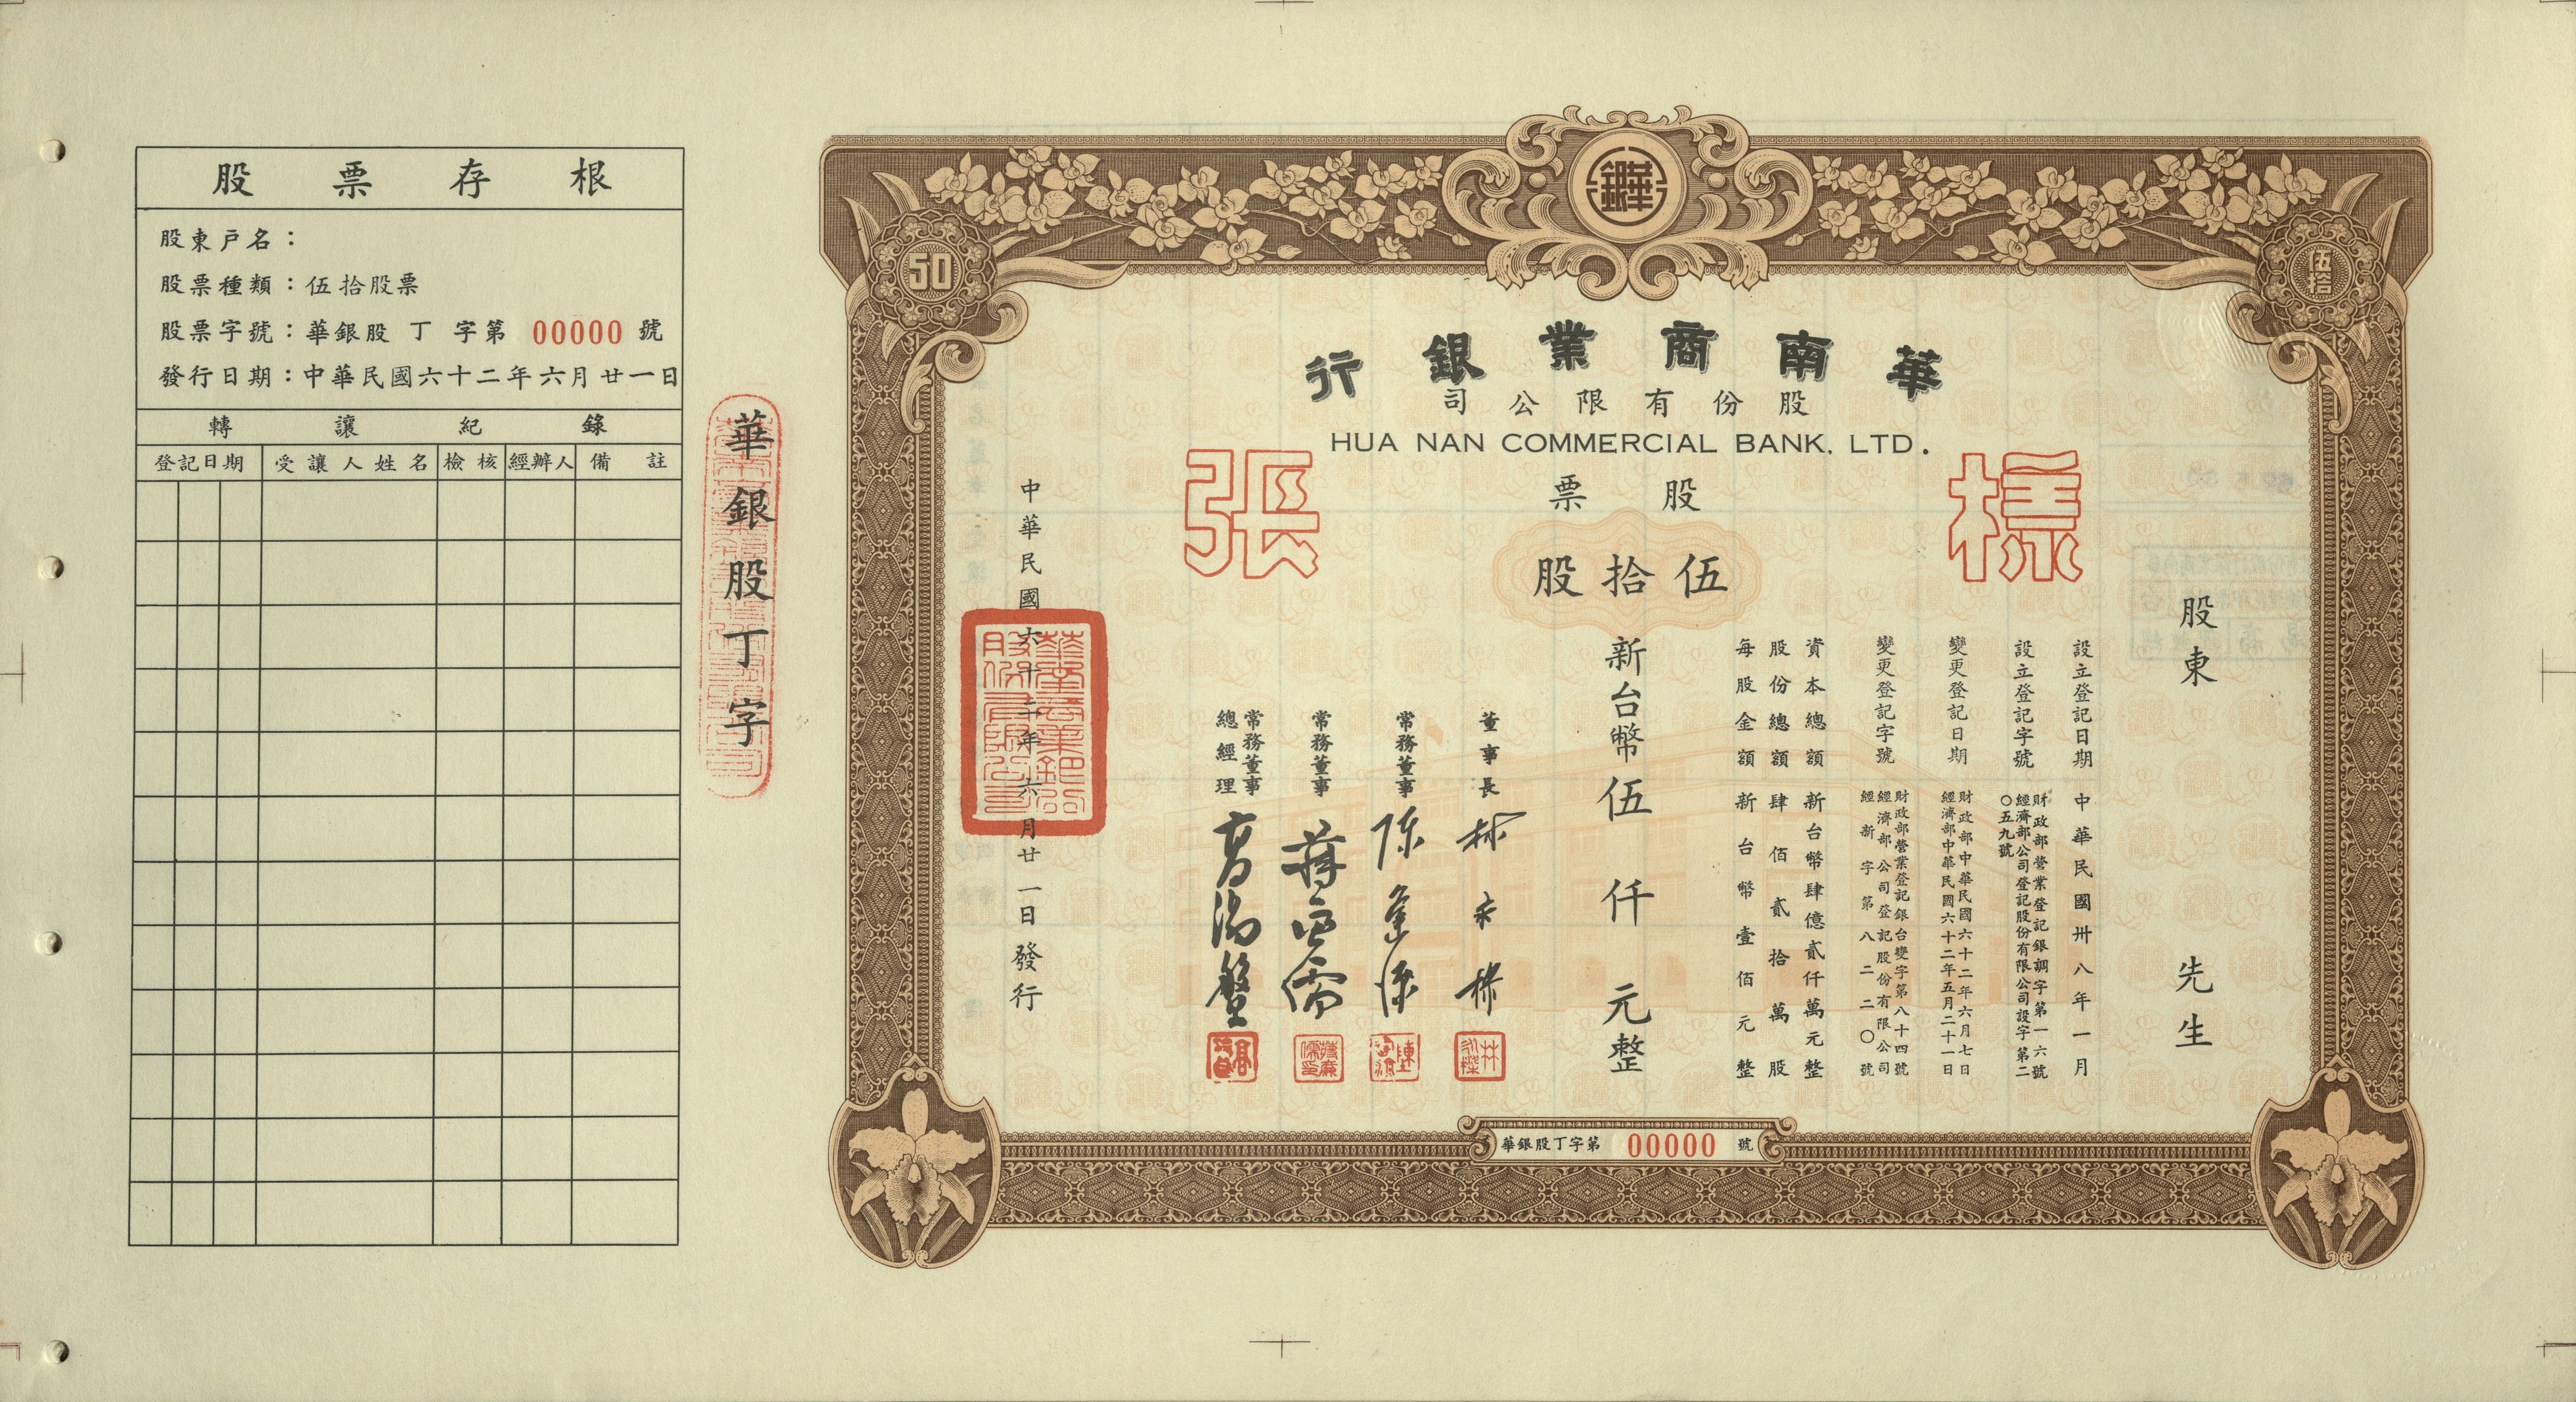 股票存根
股東戶名：
股票種類：伍拾股票
股票字號：華銀股 丁 字第 00000 號
發行日期：中華民國六十二年六月廿一日
轉讓紀錄
登記日期 受讓人姓名 檢核 經辦人 備註
華銀股丁字
50
伍拾
華南商業銀行
股份有限公司
HUA NAN COMMERCIAL BANK, LTD.
樣張
股票
伍拾股
股東 先生
設立登記日期 中華民國卅八年一月
設立登記字號 財政部營業登記銀調字第一六號
經濟部公司登記股份有限公司設字第二
〇五九號
變更登記日期 財政部中華民國六十二年六月七日
經濟部中華民國六十二年五月二十一日
變更登記字號 財政部營業登記銀台變字第八十四號
經濟部公司登記股份有限公司
經新字第八二二〇號
資本總額 新台幣肆億貳仟萬元整
股份總額 肆佰貳拾萬股
每股金額 新台幣壹佰元整
新台幣伍仟元整
董事長 林永樑
常務董事
常務董事
常務董事
總經理
中華民國六十二年六月廿一日發行
華銀股丁字第 00000 號